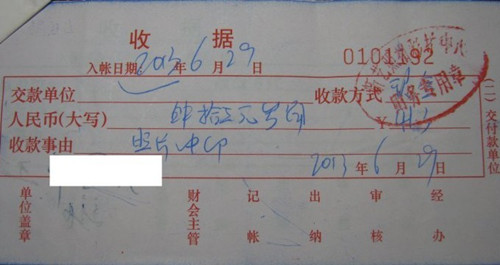 收 据
入帐日期 2013 年 6 月 29 日 0101192
交款单位 收款方式
人民币(大写) 肆拾三元 ¥ 43
收款事由 照片冲印
2013 年 6 月 29 日
单位盖章 财会主管 记帐 出纳 审核 经办
(二)交付款单位
财务专用章